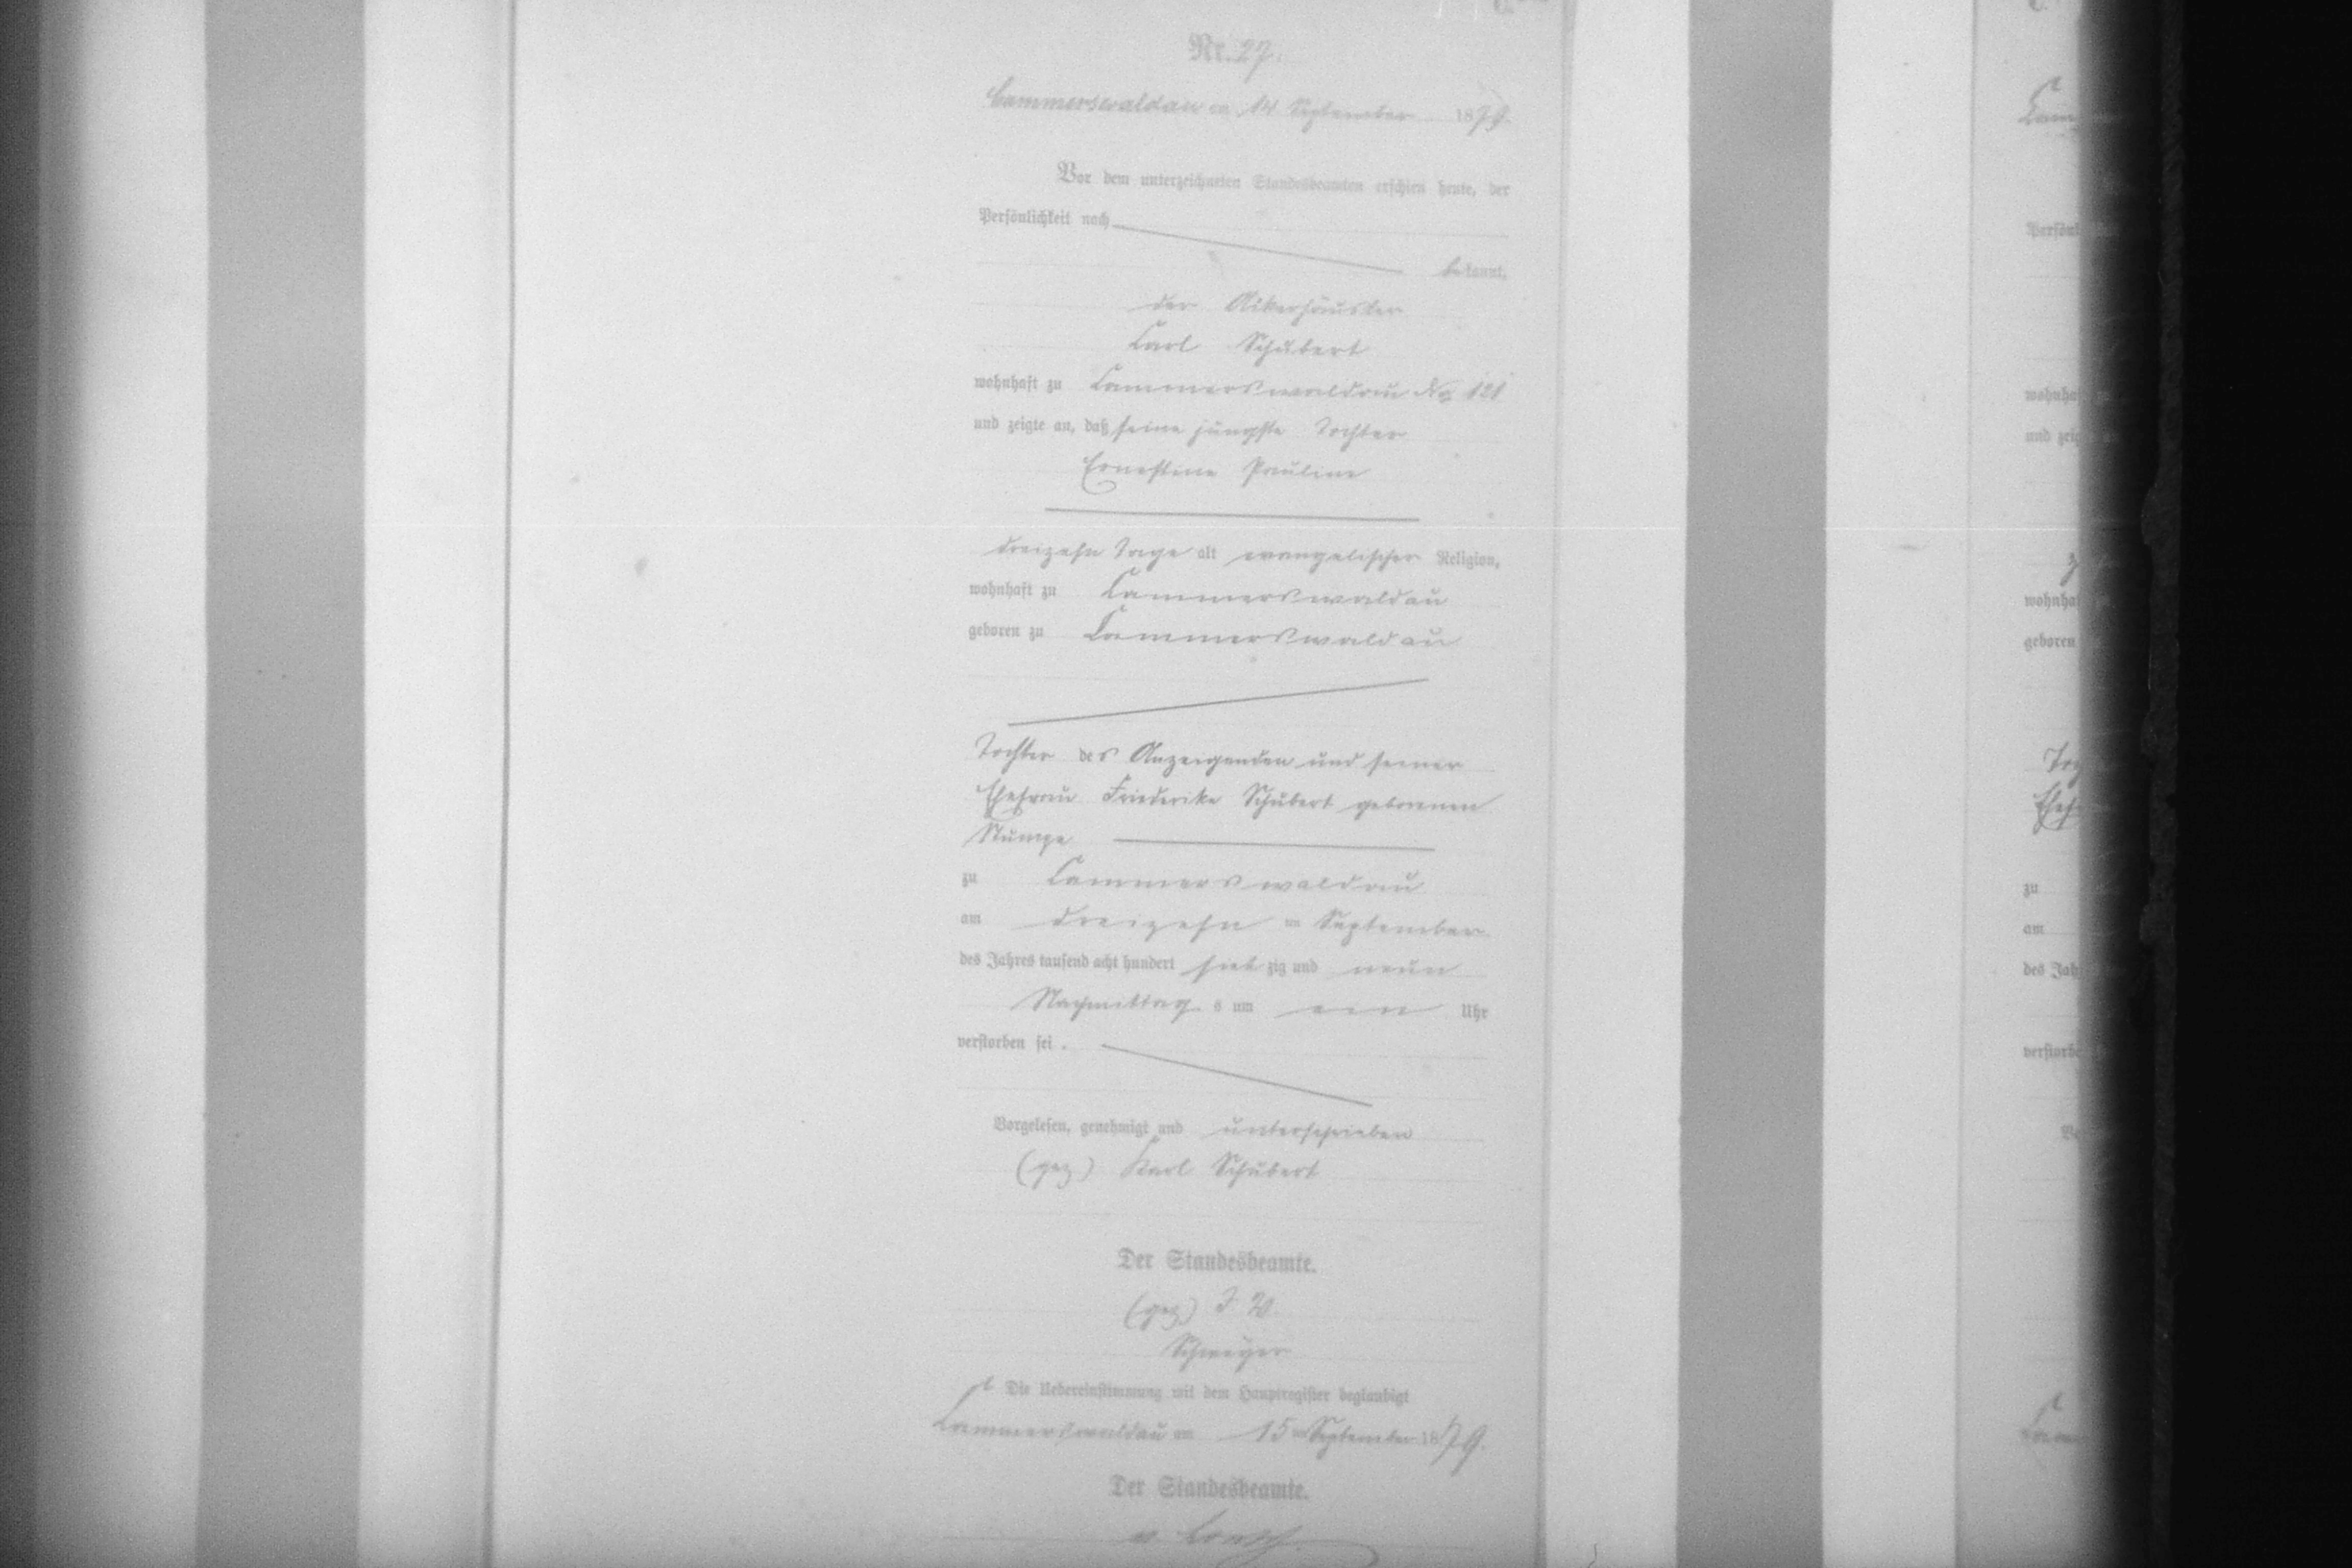 Nr. 27.
Cammerswaldau am 14 September 1879.
Vor dem unterzeichneten Standesbeamten erschien heute, der
Persönlichkeit nach
bekannt,
der Ackerhäusler
Carl Schubert
wohnhaft zu Cammerswaldau No 121
und zeigte an, daß seine jüngste Tochter
Ernestine Pauline
dreizehn Tage alt evangelischer Religion,
wohnhaft zu Cammerswaldau
geboren zu Cammerswaldau
Tochter des Anzeigenden und seiner
Ehefrau Friederike Schubert geborenen
Stumpe
zu Cammerswaldau
am dreizehn ten September
des Jahres tausend acht hundert siebzig und neun
Nachmittags um ein Uhr
verstorben sei.
Vorgelesen, genehmigt und unterschrieben
(gez) Karl Schubert
Der Standesbeamte.
(gez) I. V.
Die Uebereinstimmung mit dem Hauptregister beglaubigt
Cammerswaldau am 15ten September 1879.
Der Standesbeamte.